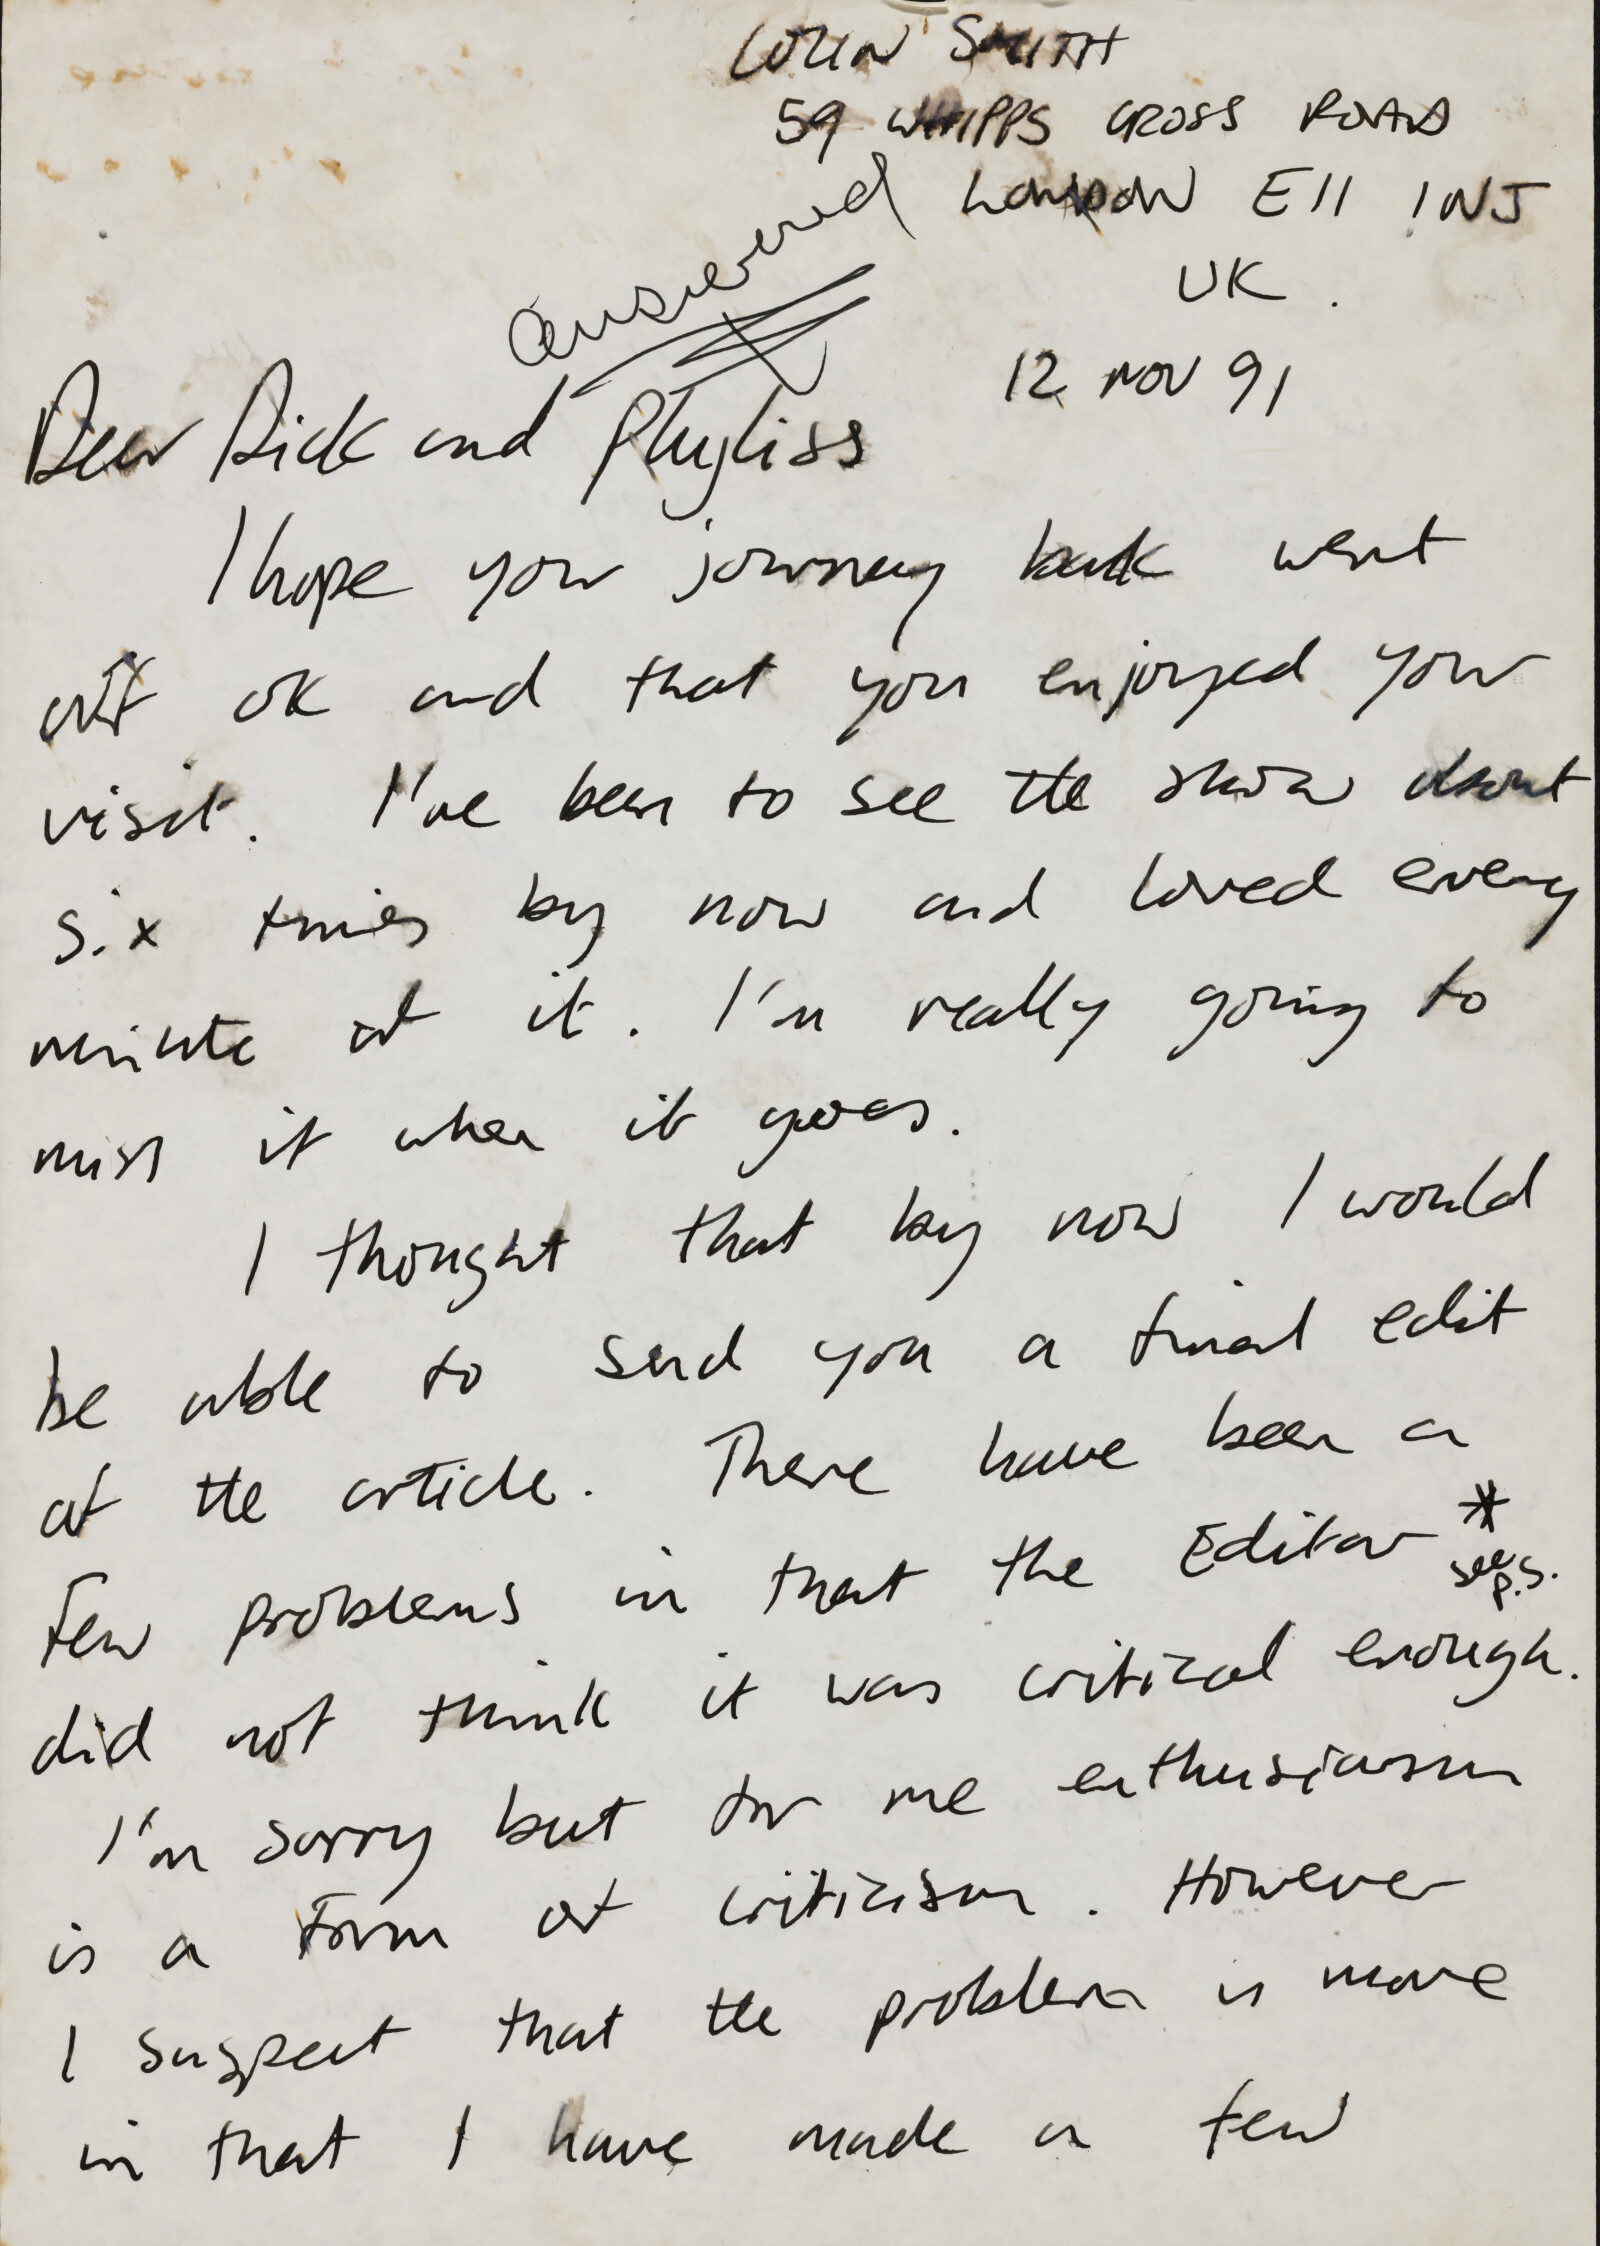 COLIN SMITH
59 WHIPPS CROSS ROAD
LONDON E11 1NJ
UK.
answered
12 NOV 91
Dear Dick and Phyliss
I hope your journey back went
off ok and that you enjoyed your
visit. I've been to see the show about
six times by now and loved every
minute of it. I'm really going to
miss it when it goes.
I thought that by now I would
be able to send you a final edit
of the article. There have been a
few problems in that the Editor *
see p.s.
did not think it was critical enough.
I'm sorry but for me enthusiasm
is a form of criticism. However
I suspect that the problem is more
in that I have made a few